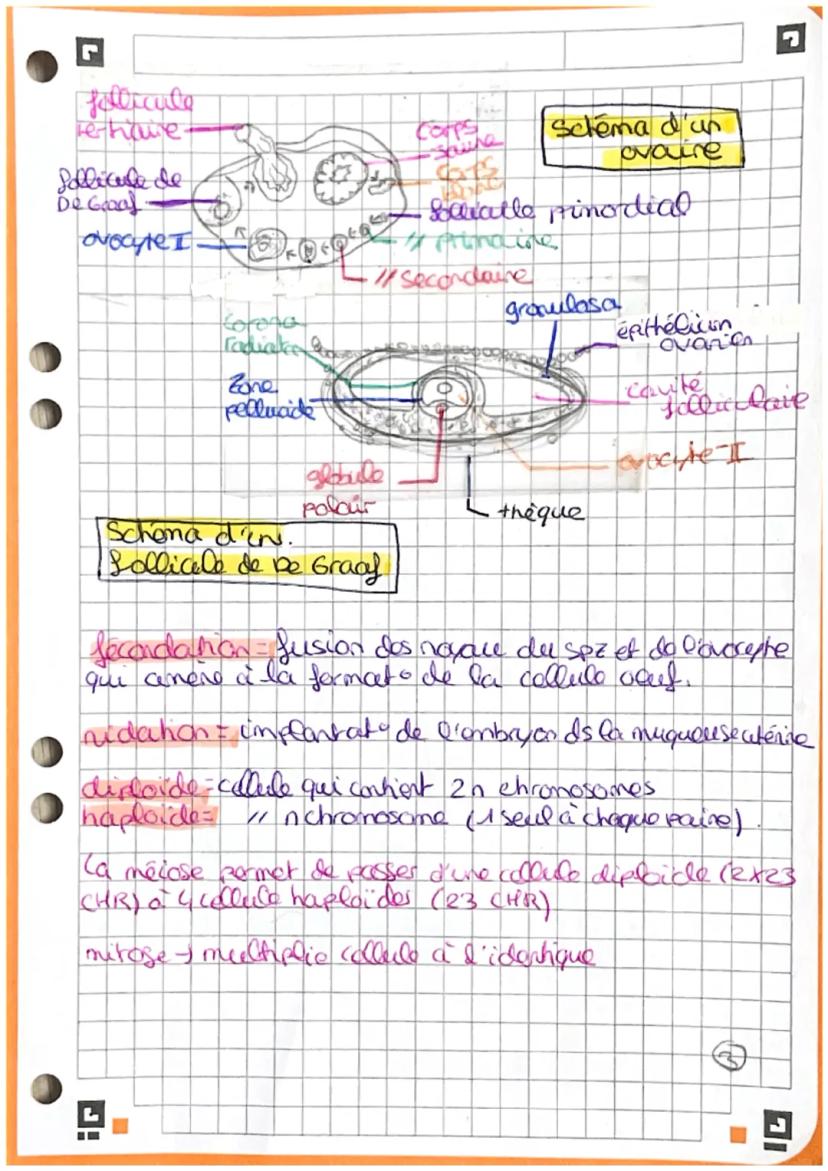 follicule
tertiaire
Corps
jaune
Schéma d'un
ovaire
follicule de
De Graaf
Corps
blanc
follicule primordial
ovocyte II
// primaire
// secondaire
granulosa
corona
radiata
épithélium
ovarien
Zone
pellucide
cavité
folliculaire
ovocyte II
globule
polair
thèque
Schéma d'un
follicule de De Graaf
fécondation = fusion des noyau du spz et de l'ovocyte
qui amène à la format° de la cellule oeuf.
nidation = implantat° de l'embryon ds la muqueuse utérine
diploïde = cellule qui contient 2n chromosomes
haploïde = // n chromosome (1 seul à chaque paire).
La méiose permet de passer d'une cellule diploïde (2x23
CHR) à 4 cellule haploïdes (23 CHR)
mitose → multiplie cellule à l'identique
3